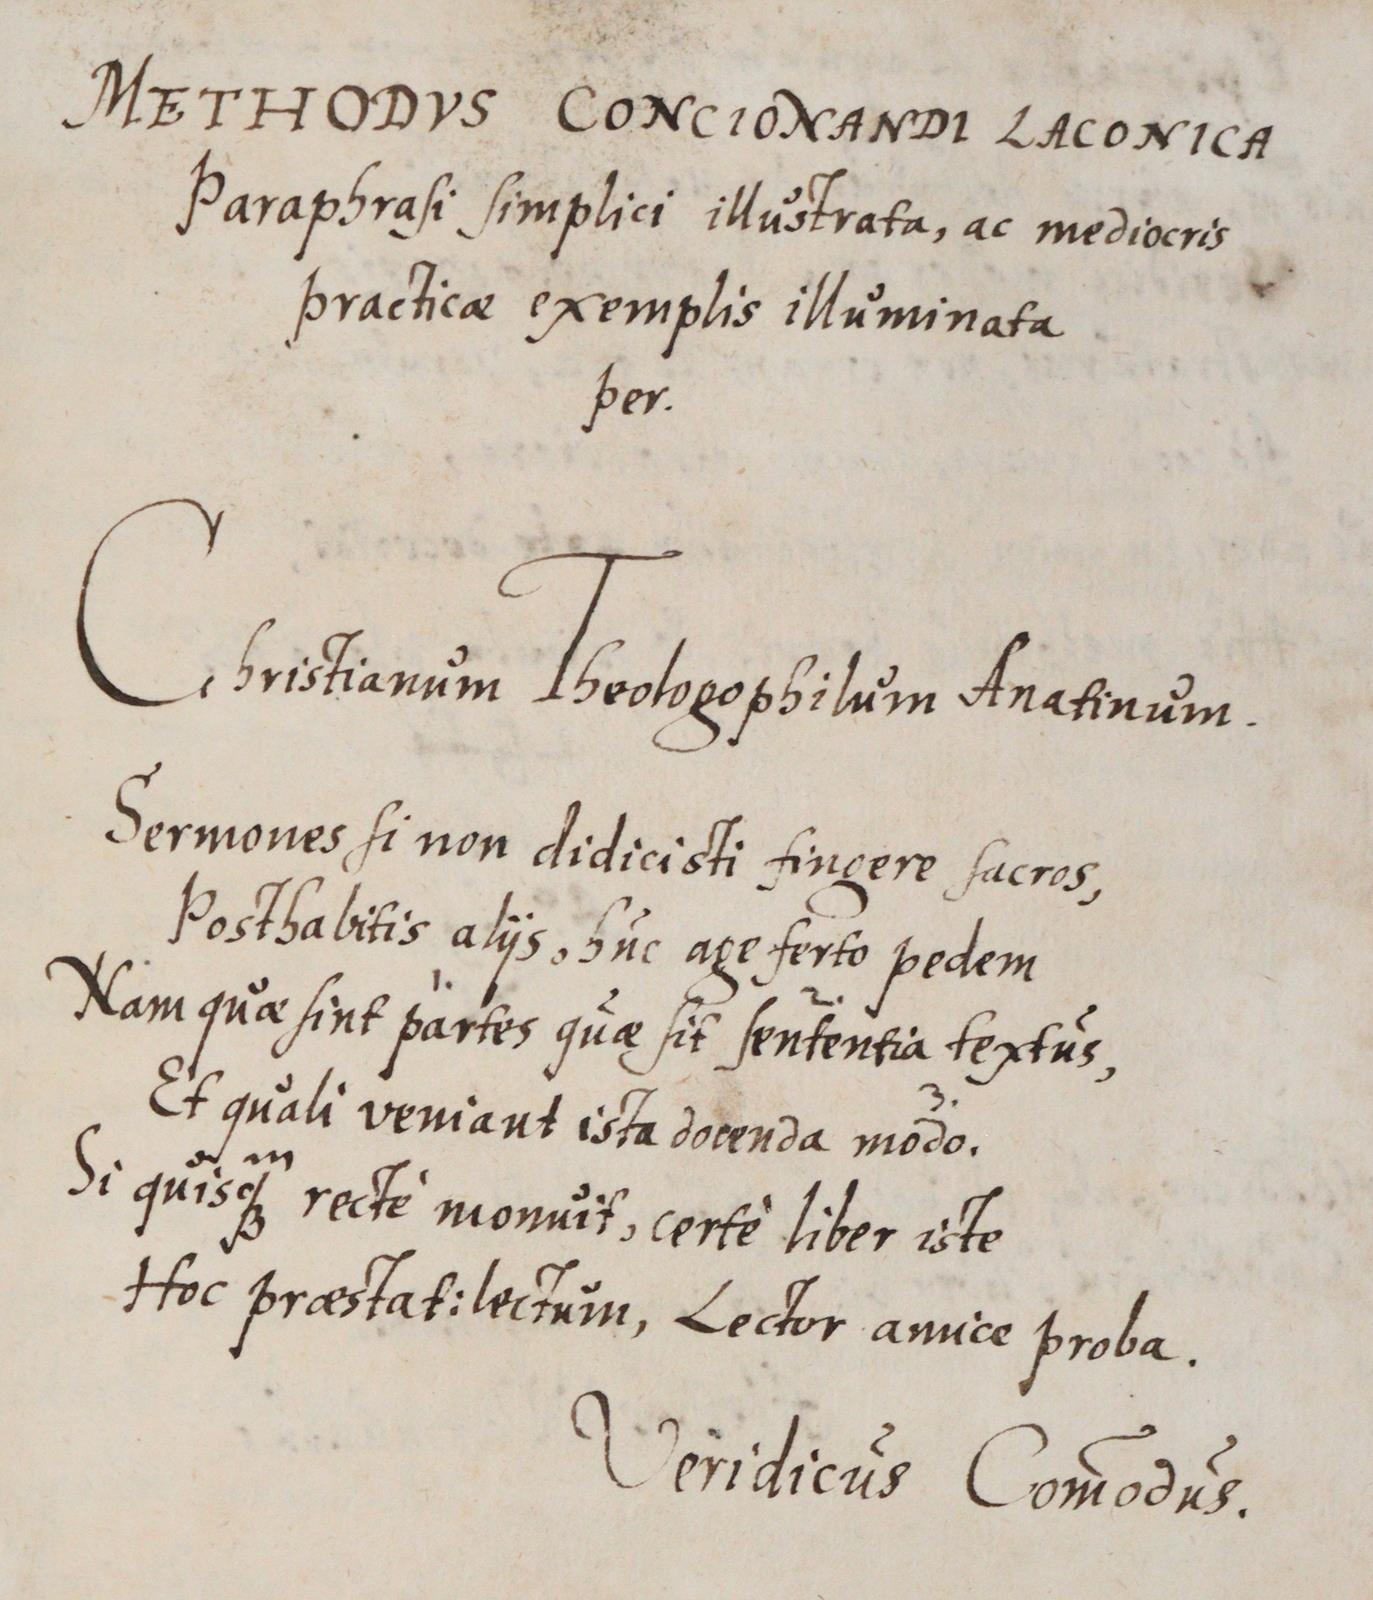 METHODVS CONCIONANDI LACONICA
Paraphrasi simplici illustrata, ac mediocris
practicæ exemplis illuminata
per.
Christianum Theologophilum Anatinum.
Sermones si non didicisti fingere sacros,
Posthabitis alijs, huc age ferto pedem
1. 2.
Nam quæ sint partes quæ sit sententia textus,
3.
Et quali veniant ista docenda modo.
m
Si quisqꝫ rectè monuit, certè liber iste
Hoc præstat: lectum, Lector amice proba.
Veridicus Com̄odus.